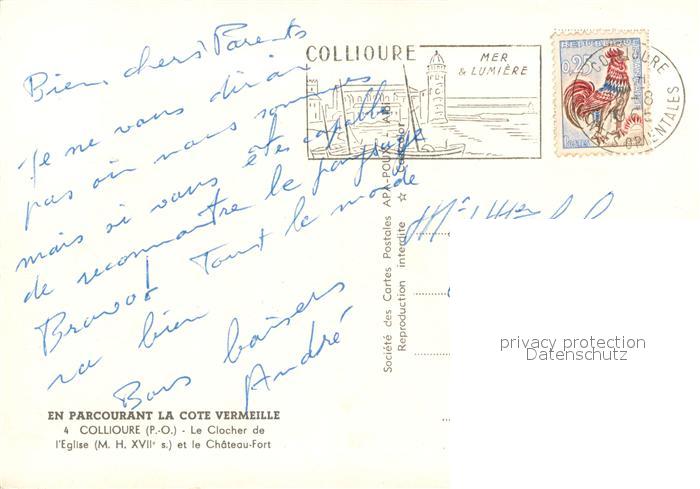 Bien chers Parents
Je ne vous dirai
pas où nous sommes
mais si vous êtes capable
de reconnaître le paysage
Bravo! Tout le monde
va bien
Bons baisers
André
COLLIOURE
MER
& LUMIÈRE
0,25
COLLIOURE
ORIENTALES
Société des Cartes Postales APA-POUX - ALBI
Reproduction interdite ☆
privacy protection
Datenschutz
EN PARCOURANT LA COTE VERMEILLE
4 COLLIOURE (P.-O.) - Le Clocher de
l'Eglise (M. H. XVIIe s.) et le Château-Fort